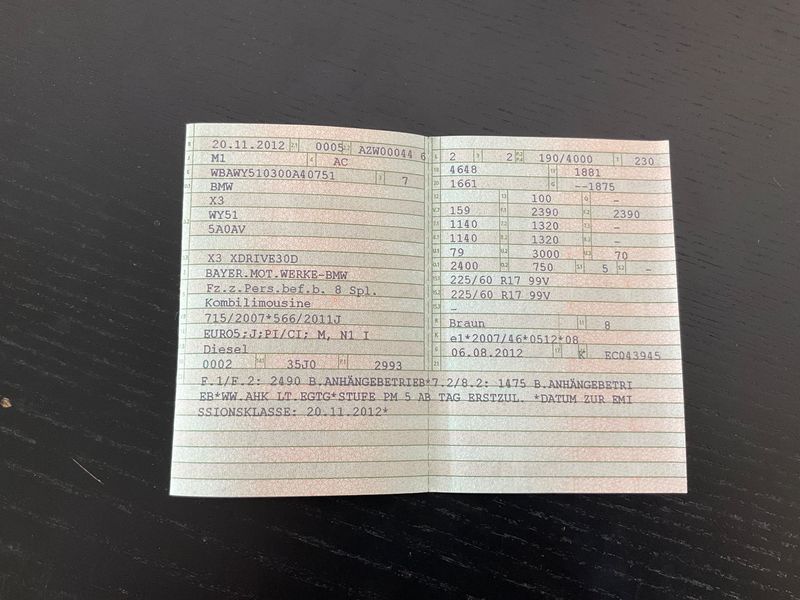 20.11.2012 0005 AZW00044 6
M1 AC
WBAWY510300A40751 7
BMW
X3
WY51
5A0AV
X3 XDRIVE30D
BAYER.MOT.WERKE-BMW
Fz.z.Pers.bef.b. 8 Spl.
Kombilimousine
715/2007*566/2011J
EURO5;J;PI/CI; M, N1 I
Diesel
0002 35J0 2993
2 2 190/4000 230
4648 1881
1661 --1875
100 -
159 2390 2390
1140 1320 -
1140 1320 -
79 3000 70
2400 750 5 -
225/60 R17 99V
225/60 R17 99V
-
Braun 8
e1*2007/46*0512*08
06.08.2012 K EC043945
F.1/F.2: 2490 B.ANHÄNGEBETRIEB*7.2/8.2: 1475 B.ANHÄNGEBETRI
EB*WW.AHK LT.EGTG*STUFE PM 5 AB TAG ERSTZUL. *DATUM ZUR EMI
SSIONSKLASSE: 20.11.2012*